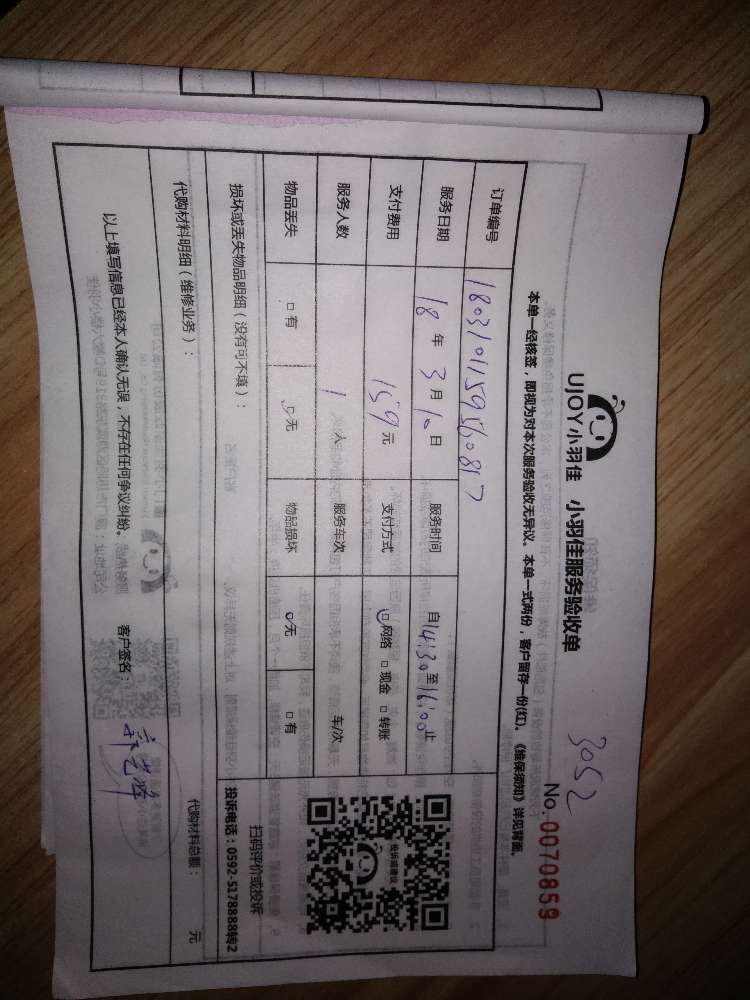 UJOY小羽佳 小羽佳服务验收单
3052
No.0070859
本单一经核签，即视为对本次服务验收无异议。本单一式两份，客户留存一份(红)。《维保须知》详见背面。
订单编号 1803101159560817
服务日期 18年3月10日 服务时间 自14:30至16:00止
支付费用 159元 支付方式 □网络 □现金 □转账
服务人数 1人 服务车次 车/次
物品丢失 □有 □无 物品损坏 □无 □有
损坏或丢失物品明细（没有可不填）：
投诉或建议
扫码评价或投诉
投诉电话：0592-5178888转2
代购材料明细（维修业务）： 代购材料总额： 元
以上填写信息已经本人确认无误，不存在任何争议纠纷。 客户签名：